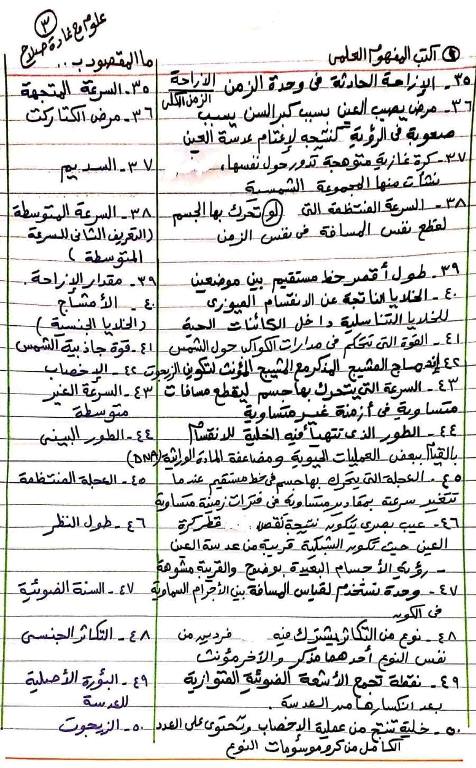 ٣
علوم مع غادة صلاح
٥ اكتب المفهوم العلمى
ما المقصود ب..
٣٥- الإزاحة الحادثة فى وحدة الزمن الإزاحة / الزمن الكلى
٣٥- السرعة المتجهة
٣٦- مرض يصيب العين بسبب كبر السن يسبب
صعوبة فى الرؤية كنتيجه لإعتام عدسة العين
٣٦- مرض الكتاركت
٣٧- كرة غازية متوهجة تدور حول نفسها،
نشأت منها المجموعة الشمسية
٣٧- السديم
٣٨- السرعة المنتظمة التى لو تحرك بها الجسم
لقطع نفس المسافة فى نفس الزمن
٣٨- السرعة المتوسطة
(التعريف الثانى للسرعة
المتوسطة)
٣٩- طول أقصر خط مستقيم بين موضعين
٣٩- مقدار الإزاحة.
٤٠- الخلايا الناتجة عن الانقسام الميوزى
للخلايا التناسلية داخل الكائنات الحية
٤٠- الأمشاج
(الخلايا الجنسية)
٤١- القوة التى تتحكم فى مدارات الكواكب حول الشمس
٤١- قوة جاذبية الشمس
٤٢- إندماج المشيج المذكر مع المشيج المؤنث لتكوين الزيجوت
٤٢- الإخصاب
٤٣- السرعة التى يتحرك بها جسم ليقطع مسافات
متساوية فى أزمنة غير متساوية
٤٣- السرعة الغير
متوسطة
٤٤- الطور الذى تتهيأ فيه الخلية للانقسام
بالقيام ببعض العمليات الحيوية ومضاعفة المادة الوراثية (DNA)
٤٤- الطور البينى
٤٥- العجلة التى يتحرك بها جسم فى خط مستقيم عندما
تتغير سرعة بمقادير متساوية فى فترات زمنية متساوية
٤٥- العجلة المنتظمة
٤٦- عيب بصرى يتكون نتيجة نقص قطر كرة
العين حيث تكون الشبكية قريبة من عدسة العين
- رؤية الأجسام البعيدة بوضوح والقريبة مشوهة
٤٦- طول النظر
٤٧- وحدة تستخدم لقياس المسافة بين الأجرام السماوية
فى الكون
٤٧- السنة الضوئية
٤٨- نوع من التكاثر يشترك فيه فردين من
نفس النوع أحدهما مذكر والآخر مؤنث
٤٨- التكاثر الجنسى
٤٩- نقطة تجمع الأشعة الضوئية المتوازية
بعد انكسارها من العدسة.
٤٩- البؤرة الأصلية
للعدسة
٥٠- خلية تنتج من عملية الإخصاب وتحتوى على العدد
الكامل من كروموسومات النوع
٥٠- الزيجوت